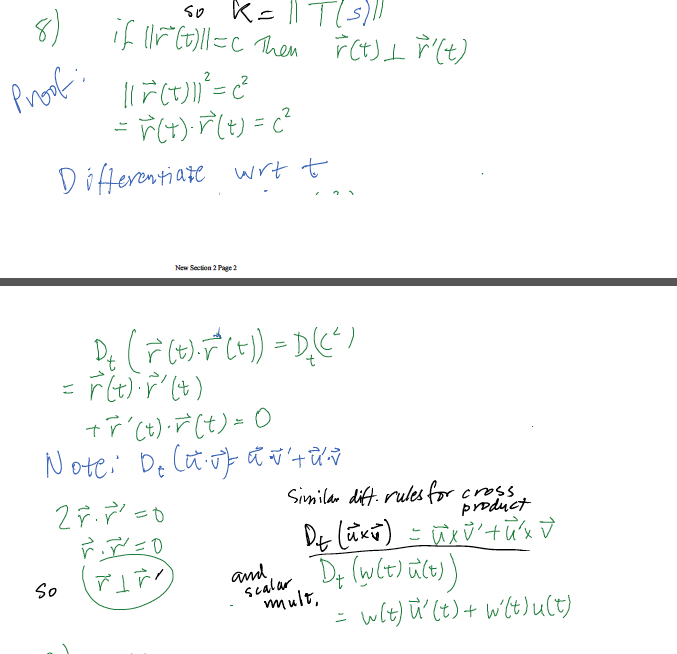 so K = || T(s)||
8) if ||r⃗(t)|| = c Then r⃗(t) ⊥ r⃗'(t)
Proof: ||r⃗(t)||² = c²
= r⃗(t)·r⃗(t) = c²
Differentiate wrt t
New Section 2 Page 2
D_t ( r⃗(t)·r⃗(t)) = D_t(c²)
= r⃗(t)·r⃗'(t)
+ r⃗'(t)·r⃗(t) = 0
Note: D_t (u⃗·v⃗) = u⃗·v⃗' + u⃗'·v⃗
Similar diff. rules for cross product
2 r⃗·r⃗' = 0
D_t (u⃗×v⃗) = u⃗×v⃗' + u⃗'×v⃗
r⃗·r⃗' = 0
so r⃗ ⊥ r⃗'
and scalar mult. D_t (w(t) u⃗(t))
= w(t) u⃗'(t) + w'(t) u(t)